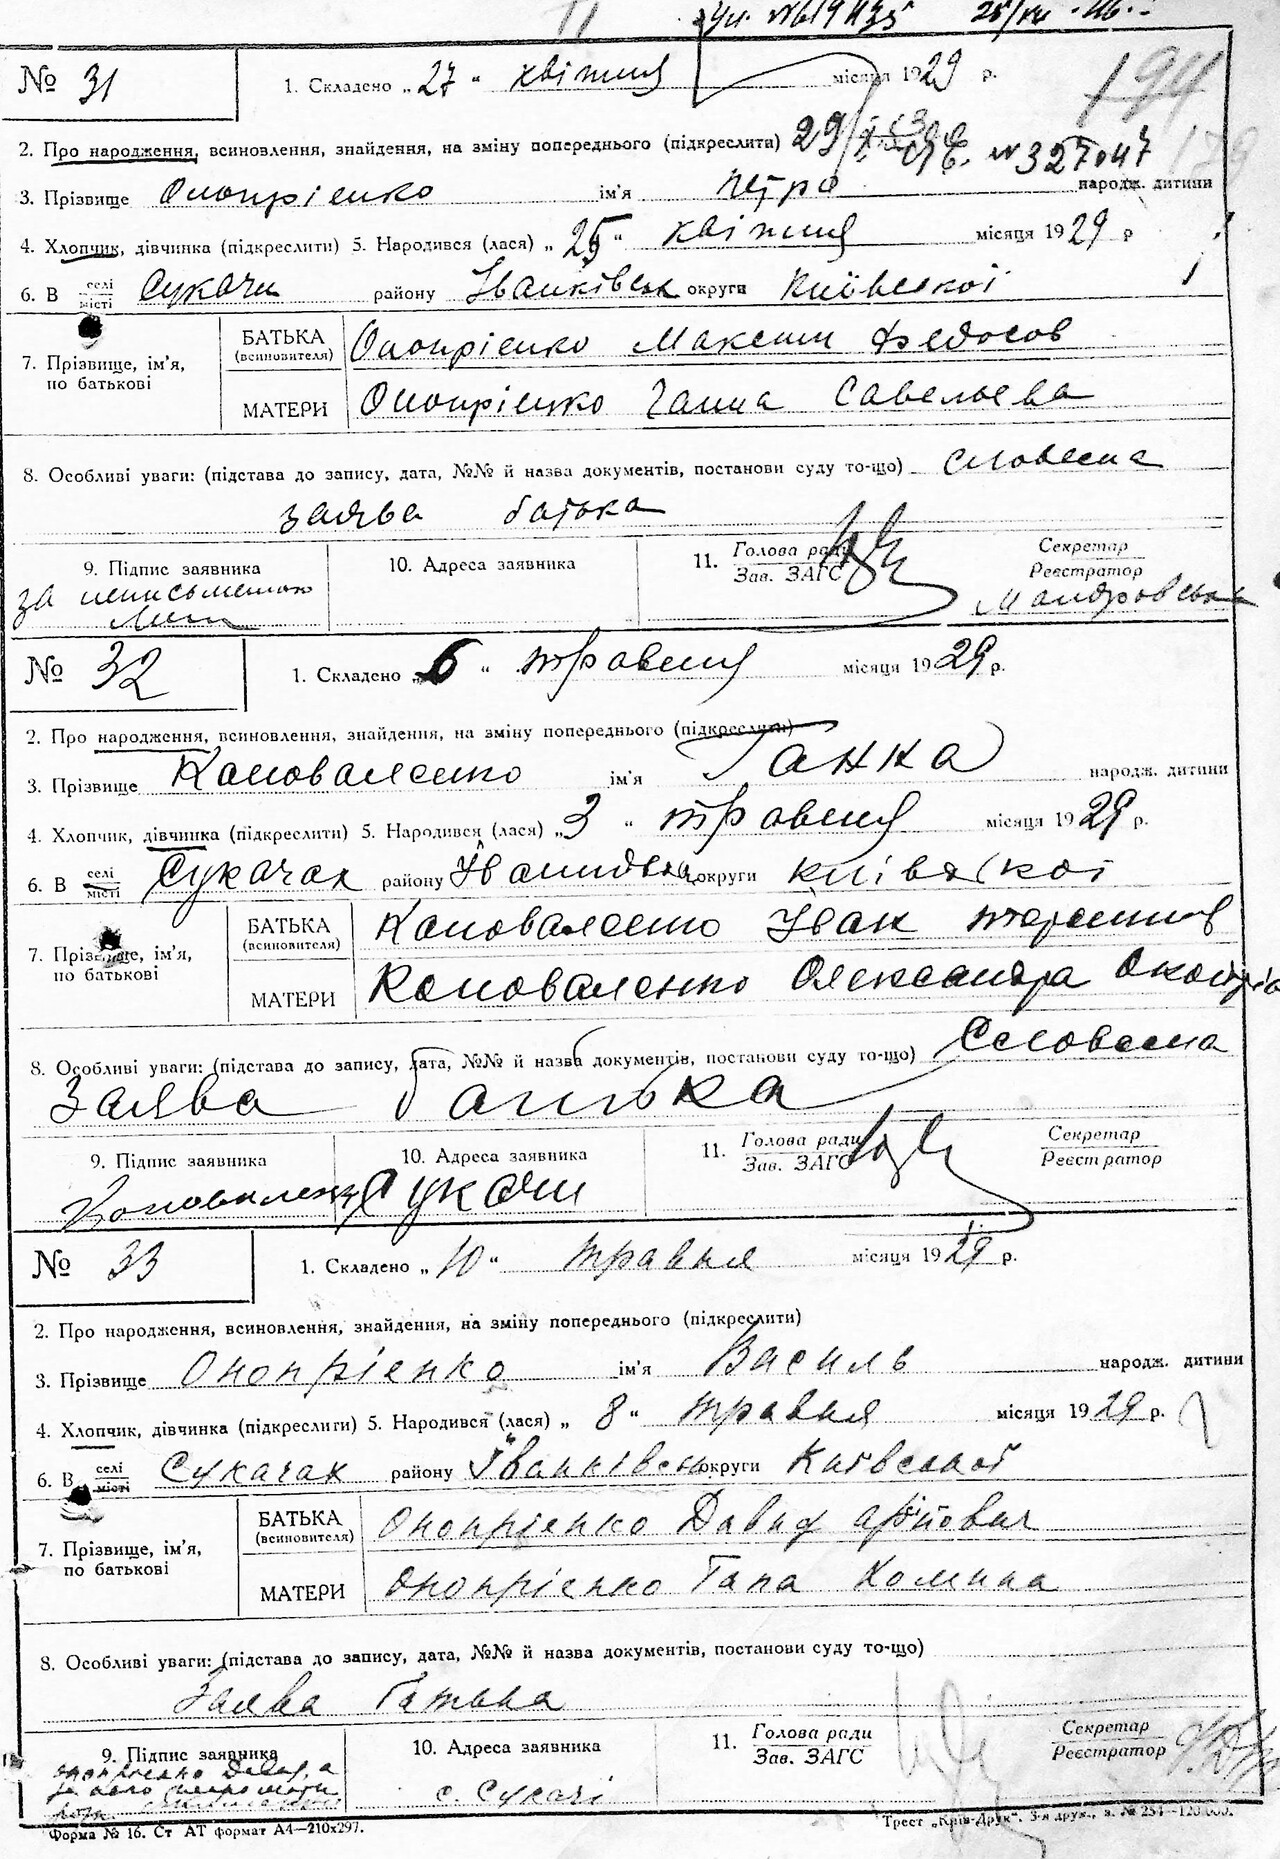 № 31 1. Складено „27“ квітня місяця 1929 р.
194
2. Про народження, всиновлення, знайдення, на зміну попереднього (підкреслити)
№ 327047
3. Прізвище Онопрієнко ім'я Петро народж. дитини
4. Хлопчик, дівчинка (підкреслити) 5. Народився (лася) „25“ квітня місяця 1929 р
6. В селі/місті Сукачи району Іванківськ округи Київської
7. Прізвище, ім'я, по батькові
БАТЬКА (всиновителя) Онопрієнко Максим Федосов
МАТЕРИ Онопрієнко Ганна Савельева
8. Особливі уваги: (підстава до запису, дата, №№ й назва документів, постанови суду то-що) Словесна
заява батька
9. Підпис заявника 10. Адреса заявника 11. Голова ради Зав. ЗАГС Секретар Реєстратор
за неписьменого
№ 32 1. Складено „6“ травня місяця 1929 р.
2. Про народження, всиновлення, знайдення, на зміну попереднього (підкреслити)
3. Прізвище Коноваленко ім'я Ганна народж. дитини
4. Хлопчик, дівчинка (підкреслити) 5. Народився (лася) „3“ травня місяця 1929 р.
6. В селі/місті Сукачах району Іванківськ округи Київської
7. Прізвище, ім'я, по батькові
БАТЬКА (всиновителя) Коноваленко Іван
МАТЕРИ Коноваленко Олександра
8. Особливі уваги: (підстава до запису, дата, №№ й назва документів, постанови суду то-що) Словесна
Заява батька
9. Підпис заявника 10. Адреса заявника 11. Голова ради Зав. ЗАГС Секретар Реєстратор
Коноваленко Сукачи
№ 33 1. Складено „10“ травня місяця 1929 р.
2. Про народження, всиновлення, знайдення, на зміну попереднього (підкреслити)
3. Прізвище Онопрієнко ім'я Василь народж. дитини
4. Хлопчик, дівчинка (підкреслити) 5. Народився (лася) „8“ травня місяця 1929 р.
6. В селі/місті Сукачах району Іванківськ округи Київської
7. Прізвище, ім'я, по батькові
БАТЬКА (всиновителя) Онопрієнко Давид
МАТЕРИ Онопрієнко Гапа
8. Особливі уваги: (підстава до запису, дата, №№ й назва документів, постанови суду то-що)
Заява батька
9. Підпис заявника 10. Адреса заявника 11. Голова ради Зав. ЗАГС Секретар Реєстратор
Онопрієнко Давид, а
с. Сукачі
Форма № 16. Ст АТ формат А4—210х297. Трест „Київ-Друк“. 3-я друк., з. № 254—120.000.